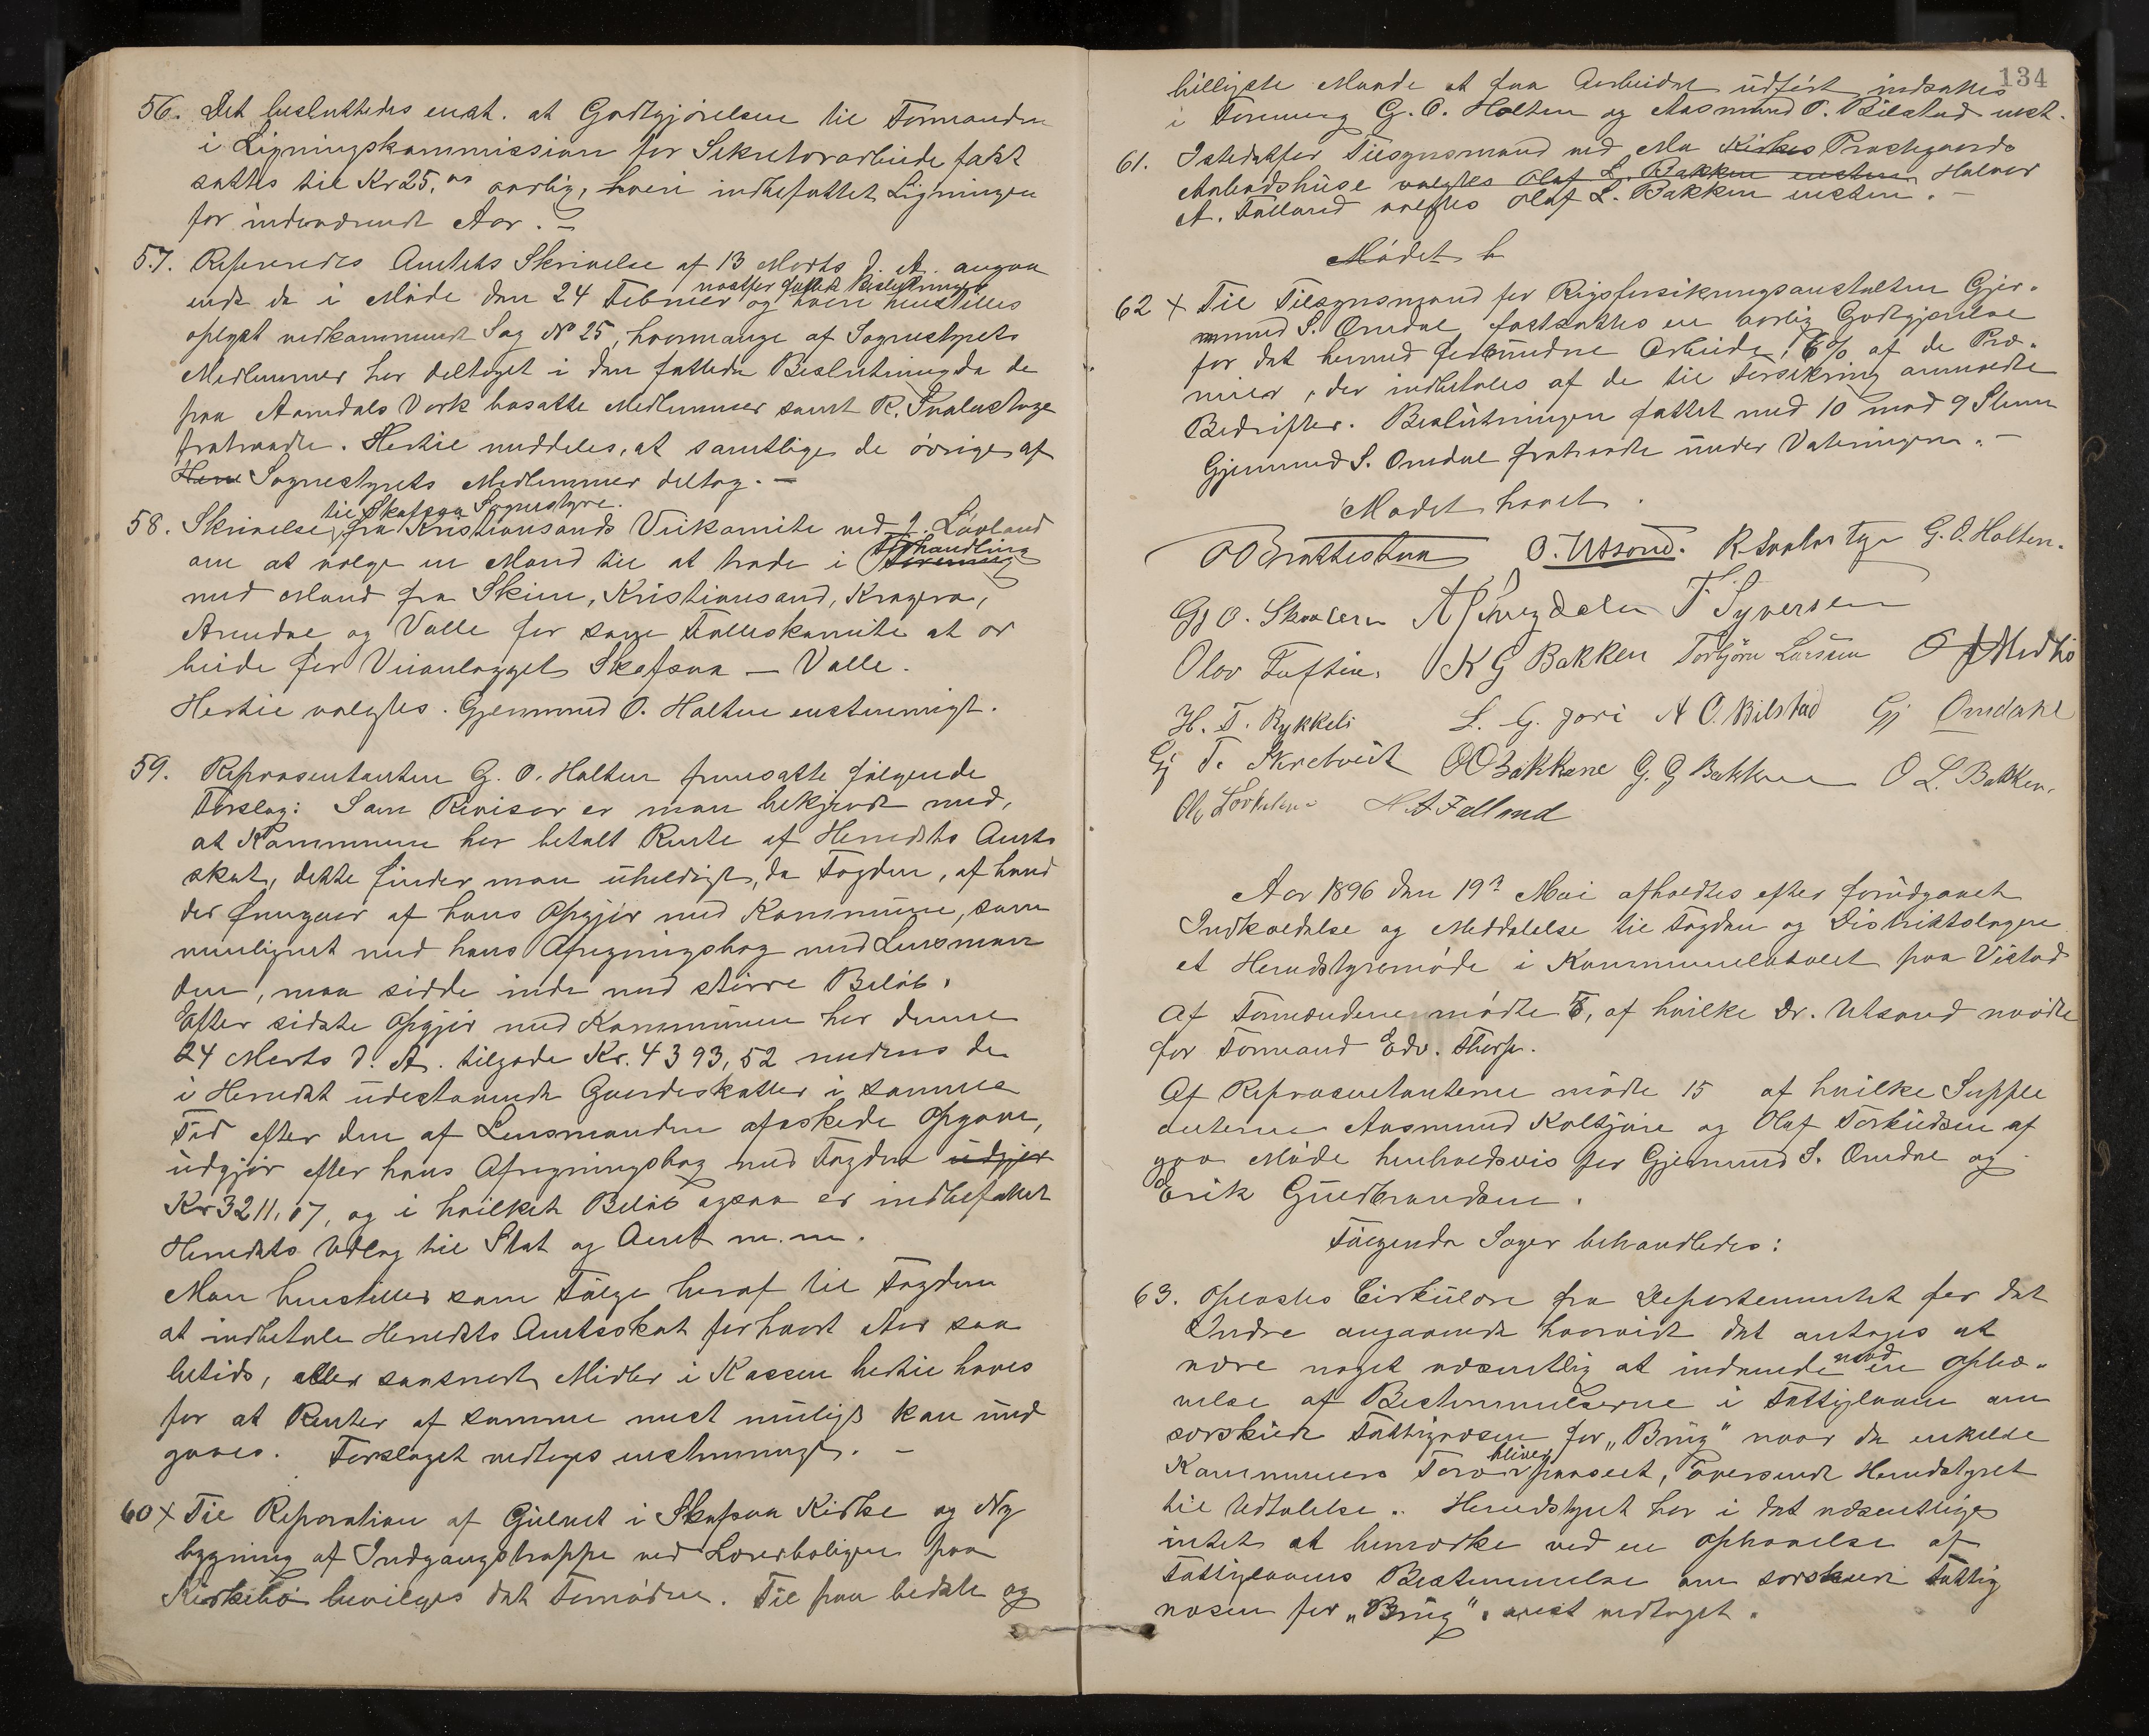 56. Det besluttedes enst. at Godtgjørelsen til Formanden
i Ligningskommission for Sekretærarbeide fast
sattes til Kr 25,00 aarlig, heri indbefattet Ligningen
for indeværende Aar. –
57. Refereredes Amtets Skrivelse af 13 Marts d. A. angaa
ende da i Møde den 24 Februar nästfor fattet Beslutninger og heri henstilles
oplyst vedkommende Sag No 25, hvormange af Sognestyrets
Medlemmer har deltaget i den fattede Beslutning da de
paa Aamdals Verk bosatte Medlemmer samt R. Svalastoge
fratraadte. Hertil meddeles, at samtlige de øvrige af
Here Sognestyrets Medlemmer deltog. –
58. Skrivelse til Skafsaa Sognestyre. fra Kristiansands Veikomite ved J. Løvland
om at vælge en Mand til at træde i Forhandling Forening
med Mænd fra Skien, Kristiansand, Kragerø,
Arendal og Valle for som Felleskomite at ar
beide for Veianlægget Skafsaa – Valle.
Hertil valgtes Gjermund O. Holten enstemmigt.
59. Repræsentanten G. O. Holten fremsatte følgende
Forslag: Som Revisor er man bekjendt med,
at Kommunen har betalt Rente af Heredets Amts
skat, dette finder man uheldigt, da Fogden, af hand
der fremgaar af hans Opgjør med Kommunen, sam
menlignet med hans Afregningsbog med Lensman
den, maa sidde inde med større Beløb.
Efter sidste Opgjør med Kommunen har denne
24 Marts d. A. tilgode Kr. 4393,52 medens de
i Heredet udestaaende Gaardeskatter i samme
Tid efter den af Lensmanden afæskede Opgave,
udgjør efter hans Afregningsbog med Fogden udgjør
Kr 3211,07, og i hvilket Beløb ogsaa er indbefattet
Heredets Udlæg til Stat og Amt m.m.
Man henstiller som Følge heraf til Fogden
at indbetale Heredets Amtsskat for hvert Aar saa
betids, eller saasnart Midler i Kassen hertil haves
for at Renter af samme mest muligt kan und
gaaes. Forslaget vedtoges enstemmigt. –
60 x Til Reparation af Gulvet i Skafsaa Kirke og Ny
bygning af Indgangstrappe ved Lærerboligen paa
Kirkebø bevilges det Fornødne. Til paa bedste og
134
billigste Maade at faa Arbeidet udført indsattes
i Forening G. O. Holten og Aasmund O. Bilstad enst.
61. Istedetfor Tilsynsmand ved Mo Kirkes Præstegaards
Anbeudshuse valgtes Olaf L. Bakken enstem. Halvor
A. Falland valgtes Olaf L. Bakken enstem. –
Mødet h
62 x Til Tilsynsmand for Rigsforsikringsanstalten Gjer-
mund S. Omdal fastsattes en aarlig Godtgjørelse
for det hermed forbundne Arbeide, 6% af de Præ-
mier, der indbetales af de til Forsikring anmeldte
Bedrifter. Beslutningen fattet med 10 mod 9 Stem
Gjermund S. Omdal fratraadte under Voteringen. –
Mødet hævet.
O O Brattestaa O. Utsond. R Svalastoge G. O. Holten.
Gj O. Skaalen A Svingdalen T. Syversen
Olav Tuftin. K G Bakken Torbjørn Larsen O J Medbø
H. T. Rykkeli L. G. Jori A O. Bilstad Gj Omdahl
Gj T. Skretveit O O Bakkane G. G Bakken O L. Bakken.
H A Falland
Aar 1896 den 19de Mai afholdtes efter forudgaaet
Indkaldelse og Meddelelse til Fogden og Distriktslægen
et Heredstyremøde i Kommunelokalet paa Vistad
Af Formændene mødte 5, af hvilke Dr. Utsond mødte
for Formand Edv. Thorp.
Af Repræsentanterne mødte 15 af hvilke Supple
anterne Aasmund Koltjøre og Olaf Torkildsen af
gav Møde henholdsvis for Gjermund S. Omdal og
Erik Gudbrandsen.
Følgende Sager behandledes:
63. Oplæstes Cirkulære fra Departementet for det
Indre angaaende hvorvidt det antages at
være noget væsentlig at indvende mod en Ophæ-
velse af Bestemmelserne i Fattigloven om
særskildt Fattigvæsen for „Brug" naar de enkelte
Kommuners Tarv bliver paaseet, oversendt Heredstyret
til Udtalelse. Heredstyret har i det væsentlige
intet at bemærke ved en Ophævelse af
Fattiglovens Bestemmelse om særskildt Fattig
væsen for „Brug". enst vedtaget.